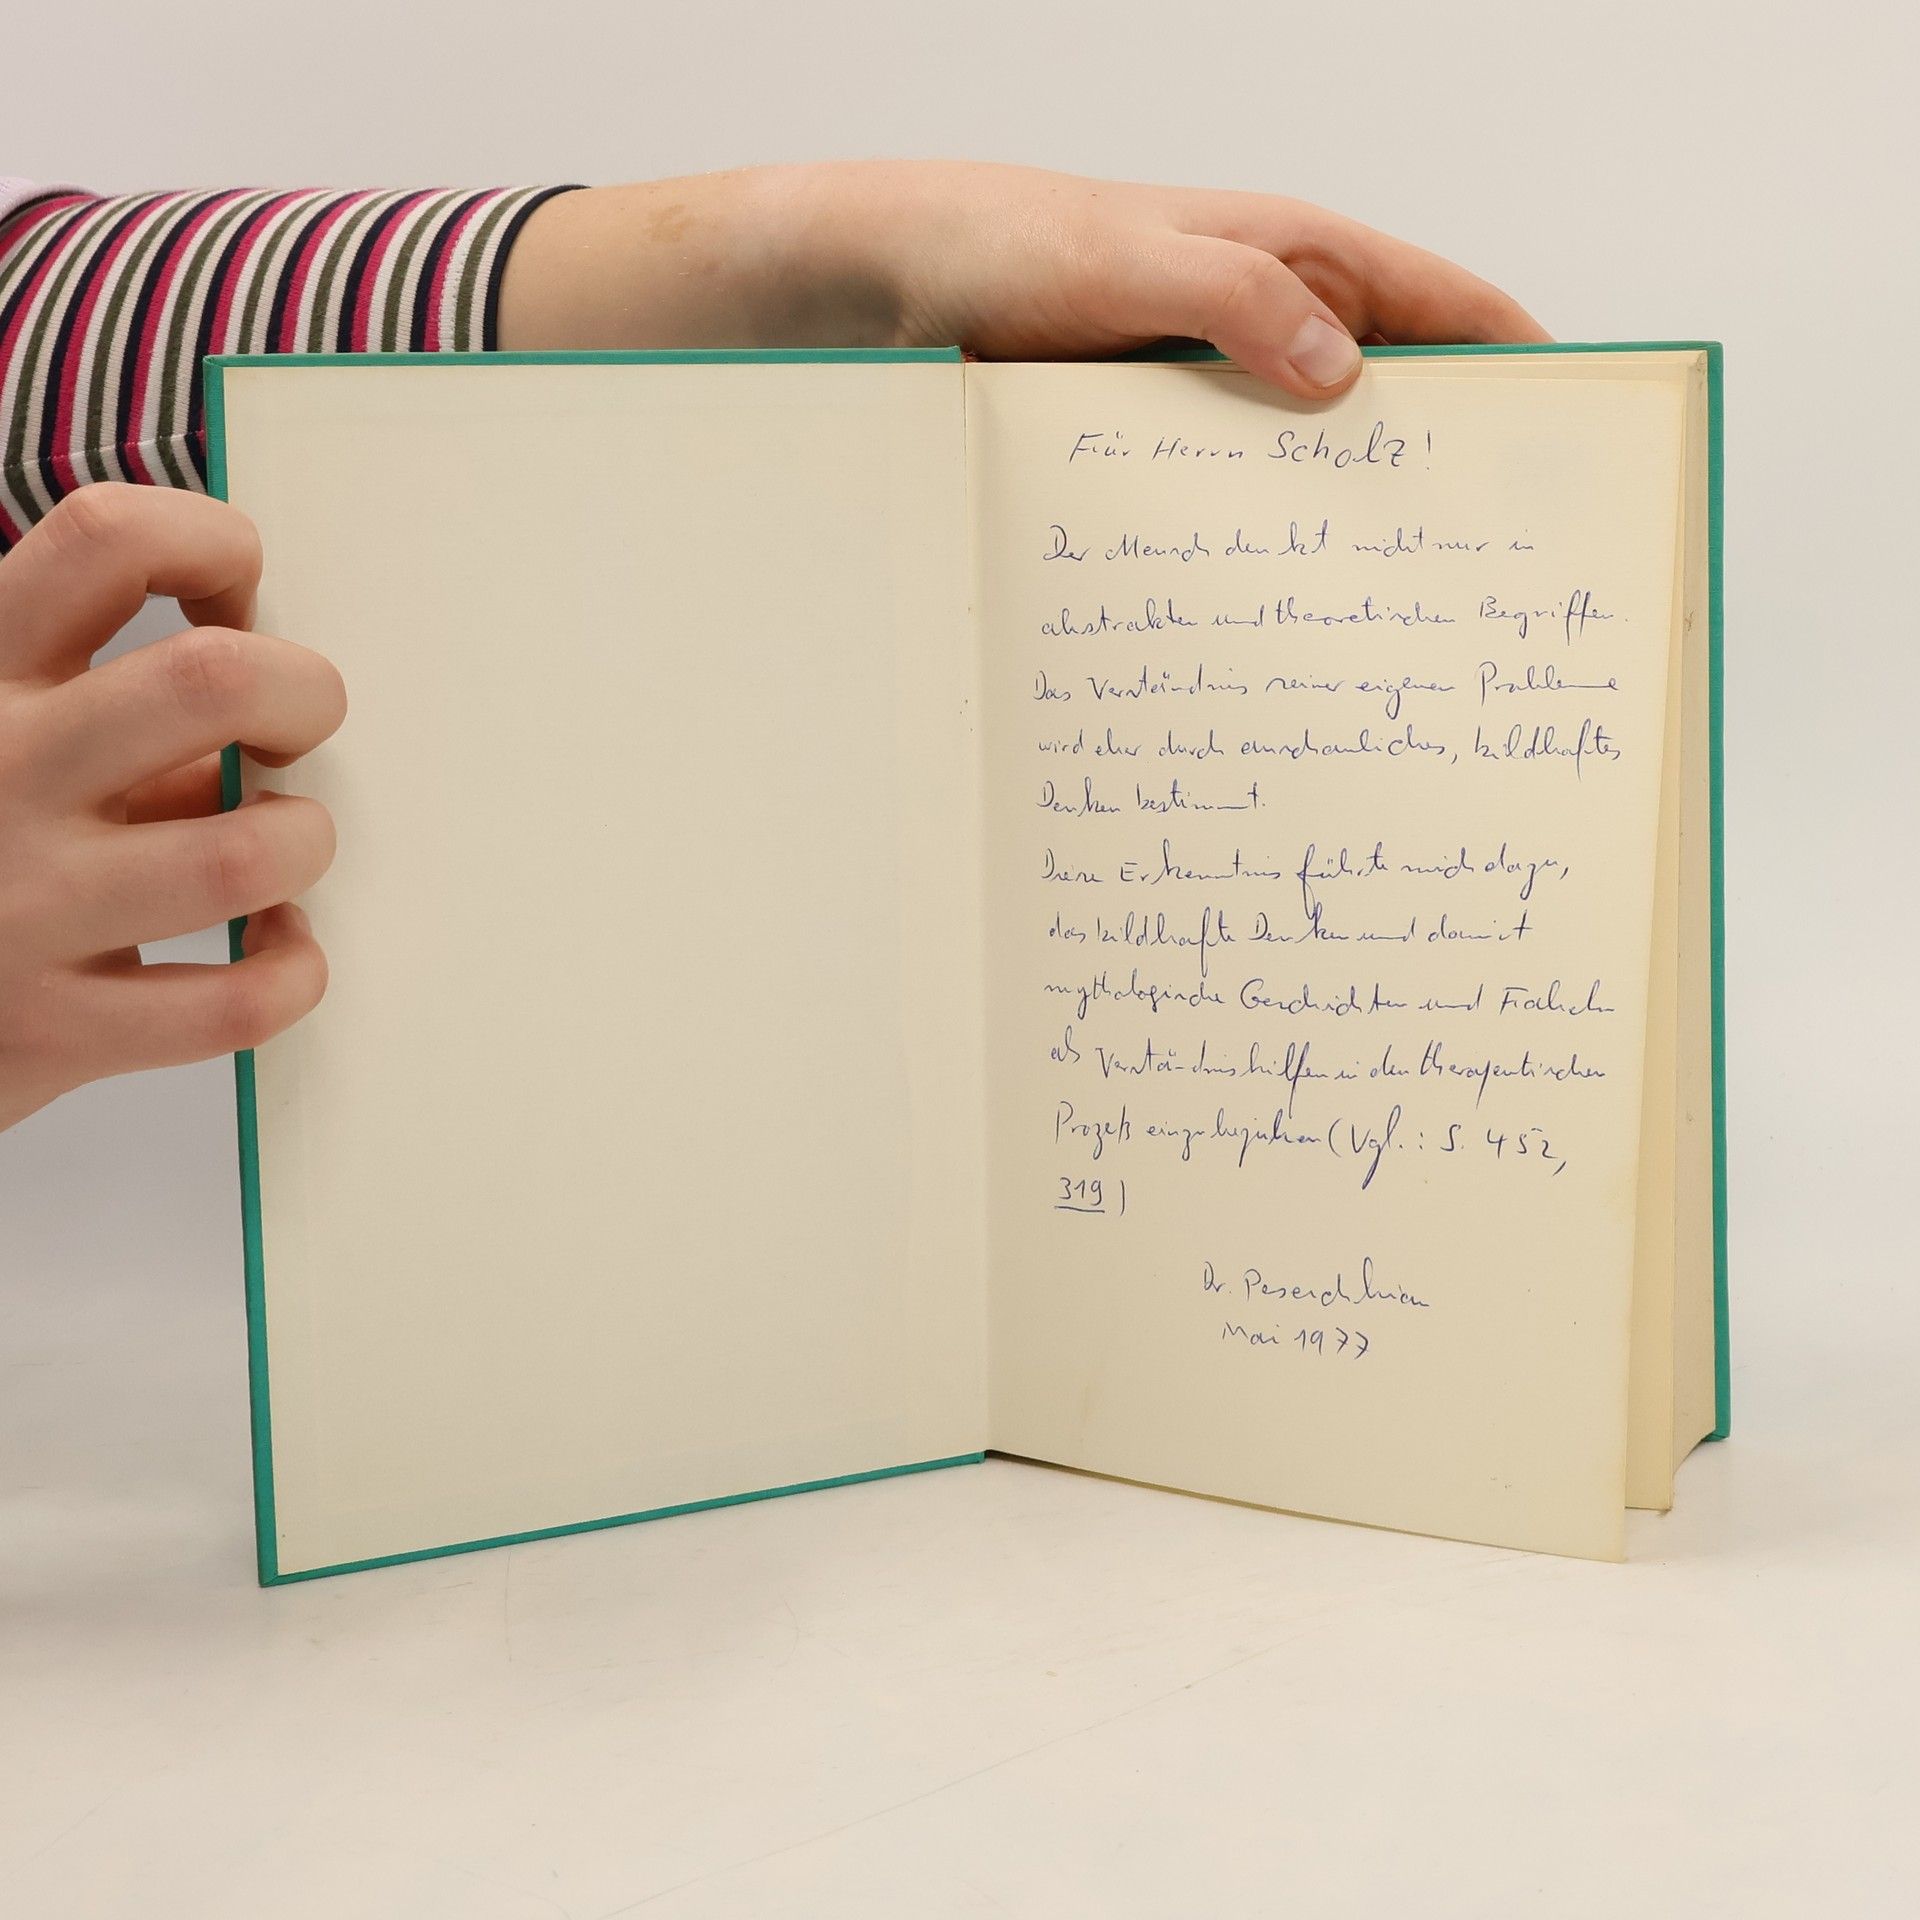 Für Herrn Scholz!
Der Mensch denkt nicht nur in
abstrakten und theoretischen Begriffen.
Das Verständnis seiner eigenen Probleme
wird eher durch anschauliches, bildhaftes
Denken bestimmt.
Diese Erkenntnis führte mich dazu,
das bildhafte Denken und damit
mythologische Geschichten und Fabeln
als Verständnishilfen in den therapeutischen
Prozeß einzubeziehen (Vgl.: S. 452,
319)
Dr. Peseschkian
Mai 1977